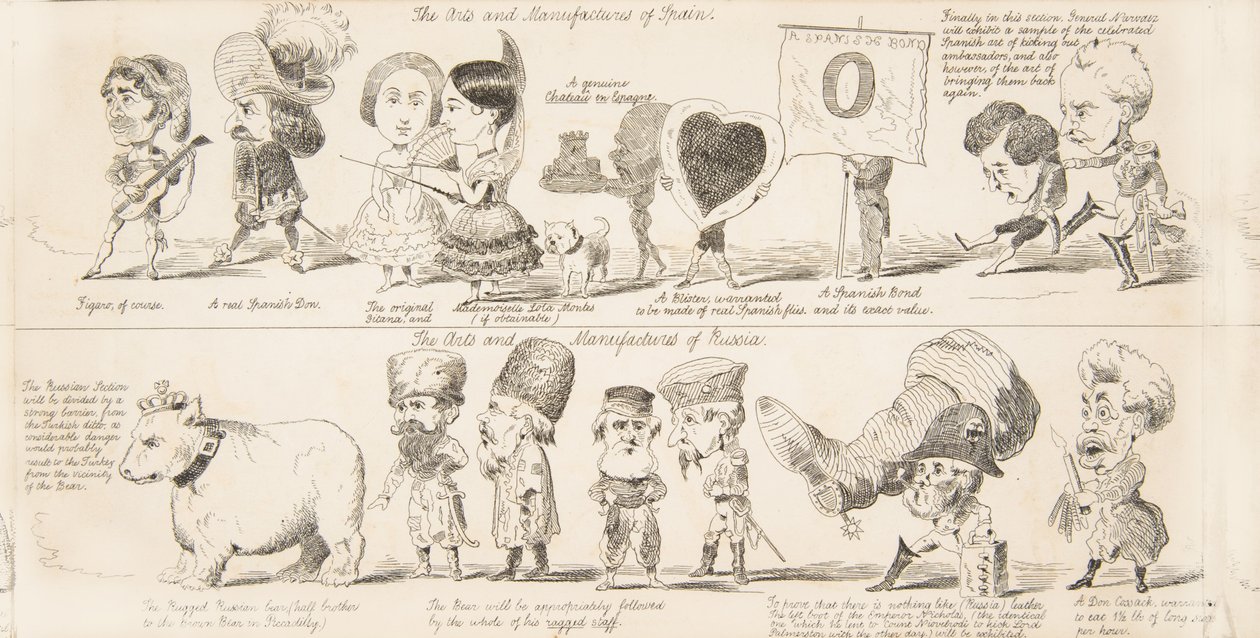 The Arts and Manufactures of Spain.
A genuine
Chateau en Espagne.
A SPANISH BOND
O
Finally in this section, General Narvaez
will exhibit a sample of the celebrated
Spanish art of kicking out
ambassadors, and also
however, of the art of
bringing them back
again.
Figaro, of course.
A real Spanish Don.
The original
Gitana, and
Mademoiselle Lola Montes
(if obtainable)
A Blister, warranted
to be made of real Spanish flies.
A Spanish Bond
and its exact value.
The Arts and Manufactures of Russia.
The Russian Section
will be divided by a
strong barrier, from
the Turkish ditto, as
considerable danger
would probably
result to the Turkey
from the vicinity
of the Bear.
The Rugged Russian bear, (half brother
to the brown Bear in Piccadilly.)
The Bear will be appropriately followed
by the whole of his ragged staff.
To prove that there is nothing like (Russia) leather
The left boot of the Emperor Nicholas, (the identical
one which he lent to Count to kick Lord
Palmerston with the other day,) will be exhibited.
A Don Cossack, warranted
to eat 1½ lbs of long
per hour.